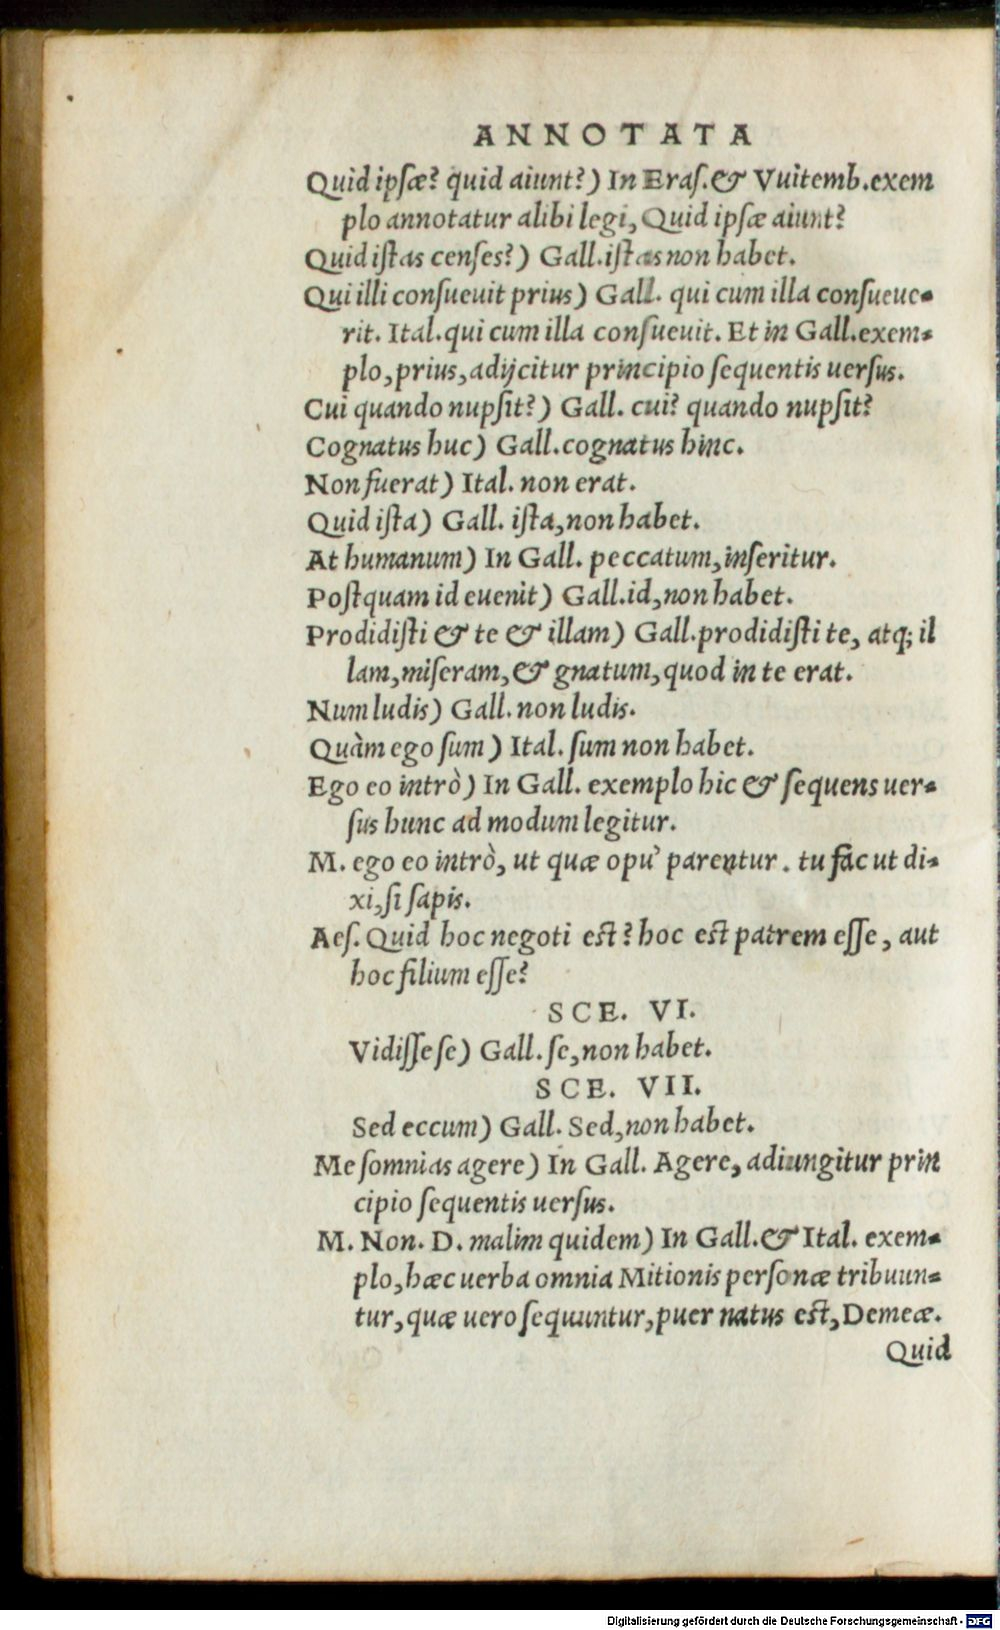 ANNOTATA
Quid ipſæ? quid aiunt?) In Eraſ. & Vuitemb. exem
plo annotatur alibi legi, Quid ipſæ aiunt?
Quid iſtas cenſes?) Gall. iſtas non habet.
Qui illi conſueuit prius) Gall. qui cum illa conſueue-
rit. Ital. qui cum illa conſueuit. Et in Gall. exem-
plo, prius, adijcitur principio ſequentis uerſus.
Cui quando nupſit?) Gall. cui? quando nupſit?
Cognatus huc) Gall. cognatus hinc.
Non fuerat) Ital. non erat.
Quid iſta) Gall. iſta, non habet.
At humanum) In Gall. peccatum, inſeritur.
Poſtquam id euenit) Gall. id, non habet.
Prodidiſti & te & illam) Gall. prodidiſti te, atq; il
lam, miſeram, & gnatum, quod in te erat.
Num ludis) Gall. non ludis.
Quàm ego ſum) Ital. ſum non habet.
Ego eo intrò) In Gall. exemplo hic & ſequens uer-
ſus hunc ad modum legitur.
M. ego eo intrò, ut quæ opu' parentur. tu fac ut di-
xi, ſi ſapis.
Aeſ. Quid hoc negoti eſt? hoc eſt patrem eſſe, aut
hoc filium eſſe?
SCE. VI.
Vidiſſe ſe) Gall. ſe, non habet.
SCE. VII.
Sed eccum) Gall. Sed, non habet.
Me ſomnias agere) In Gall. Agere, adiungitur prin
cipio ſequentis uerſus.
M. Non. D. malim quidem) In Gall. & Ital. exem-
plo, hæc uerba omnia Mitionis perſonæ tribuun-
tur, quæ uero ſequuntur, puer natus eſt, Demeæ.
Quid
Digitalisierung gefördert durch die Deutsche Forschungsgemeinschaft - DFG